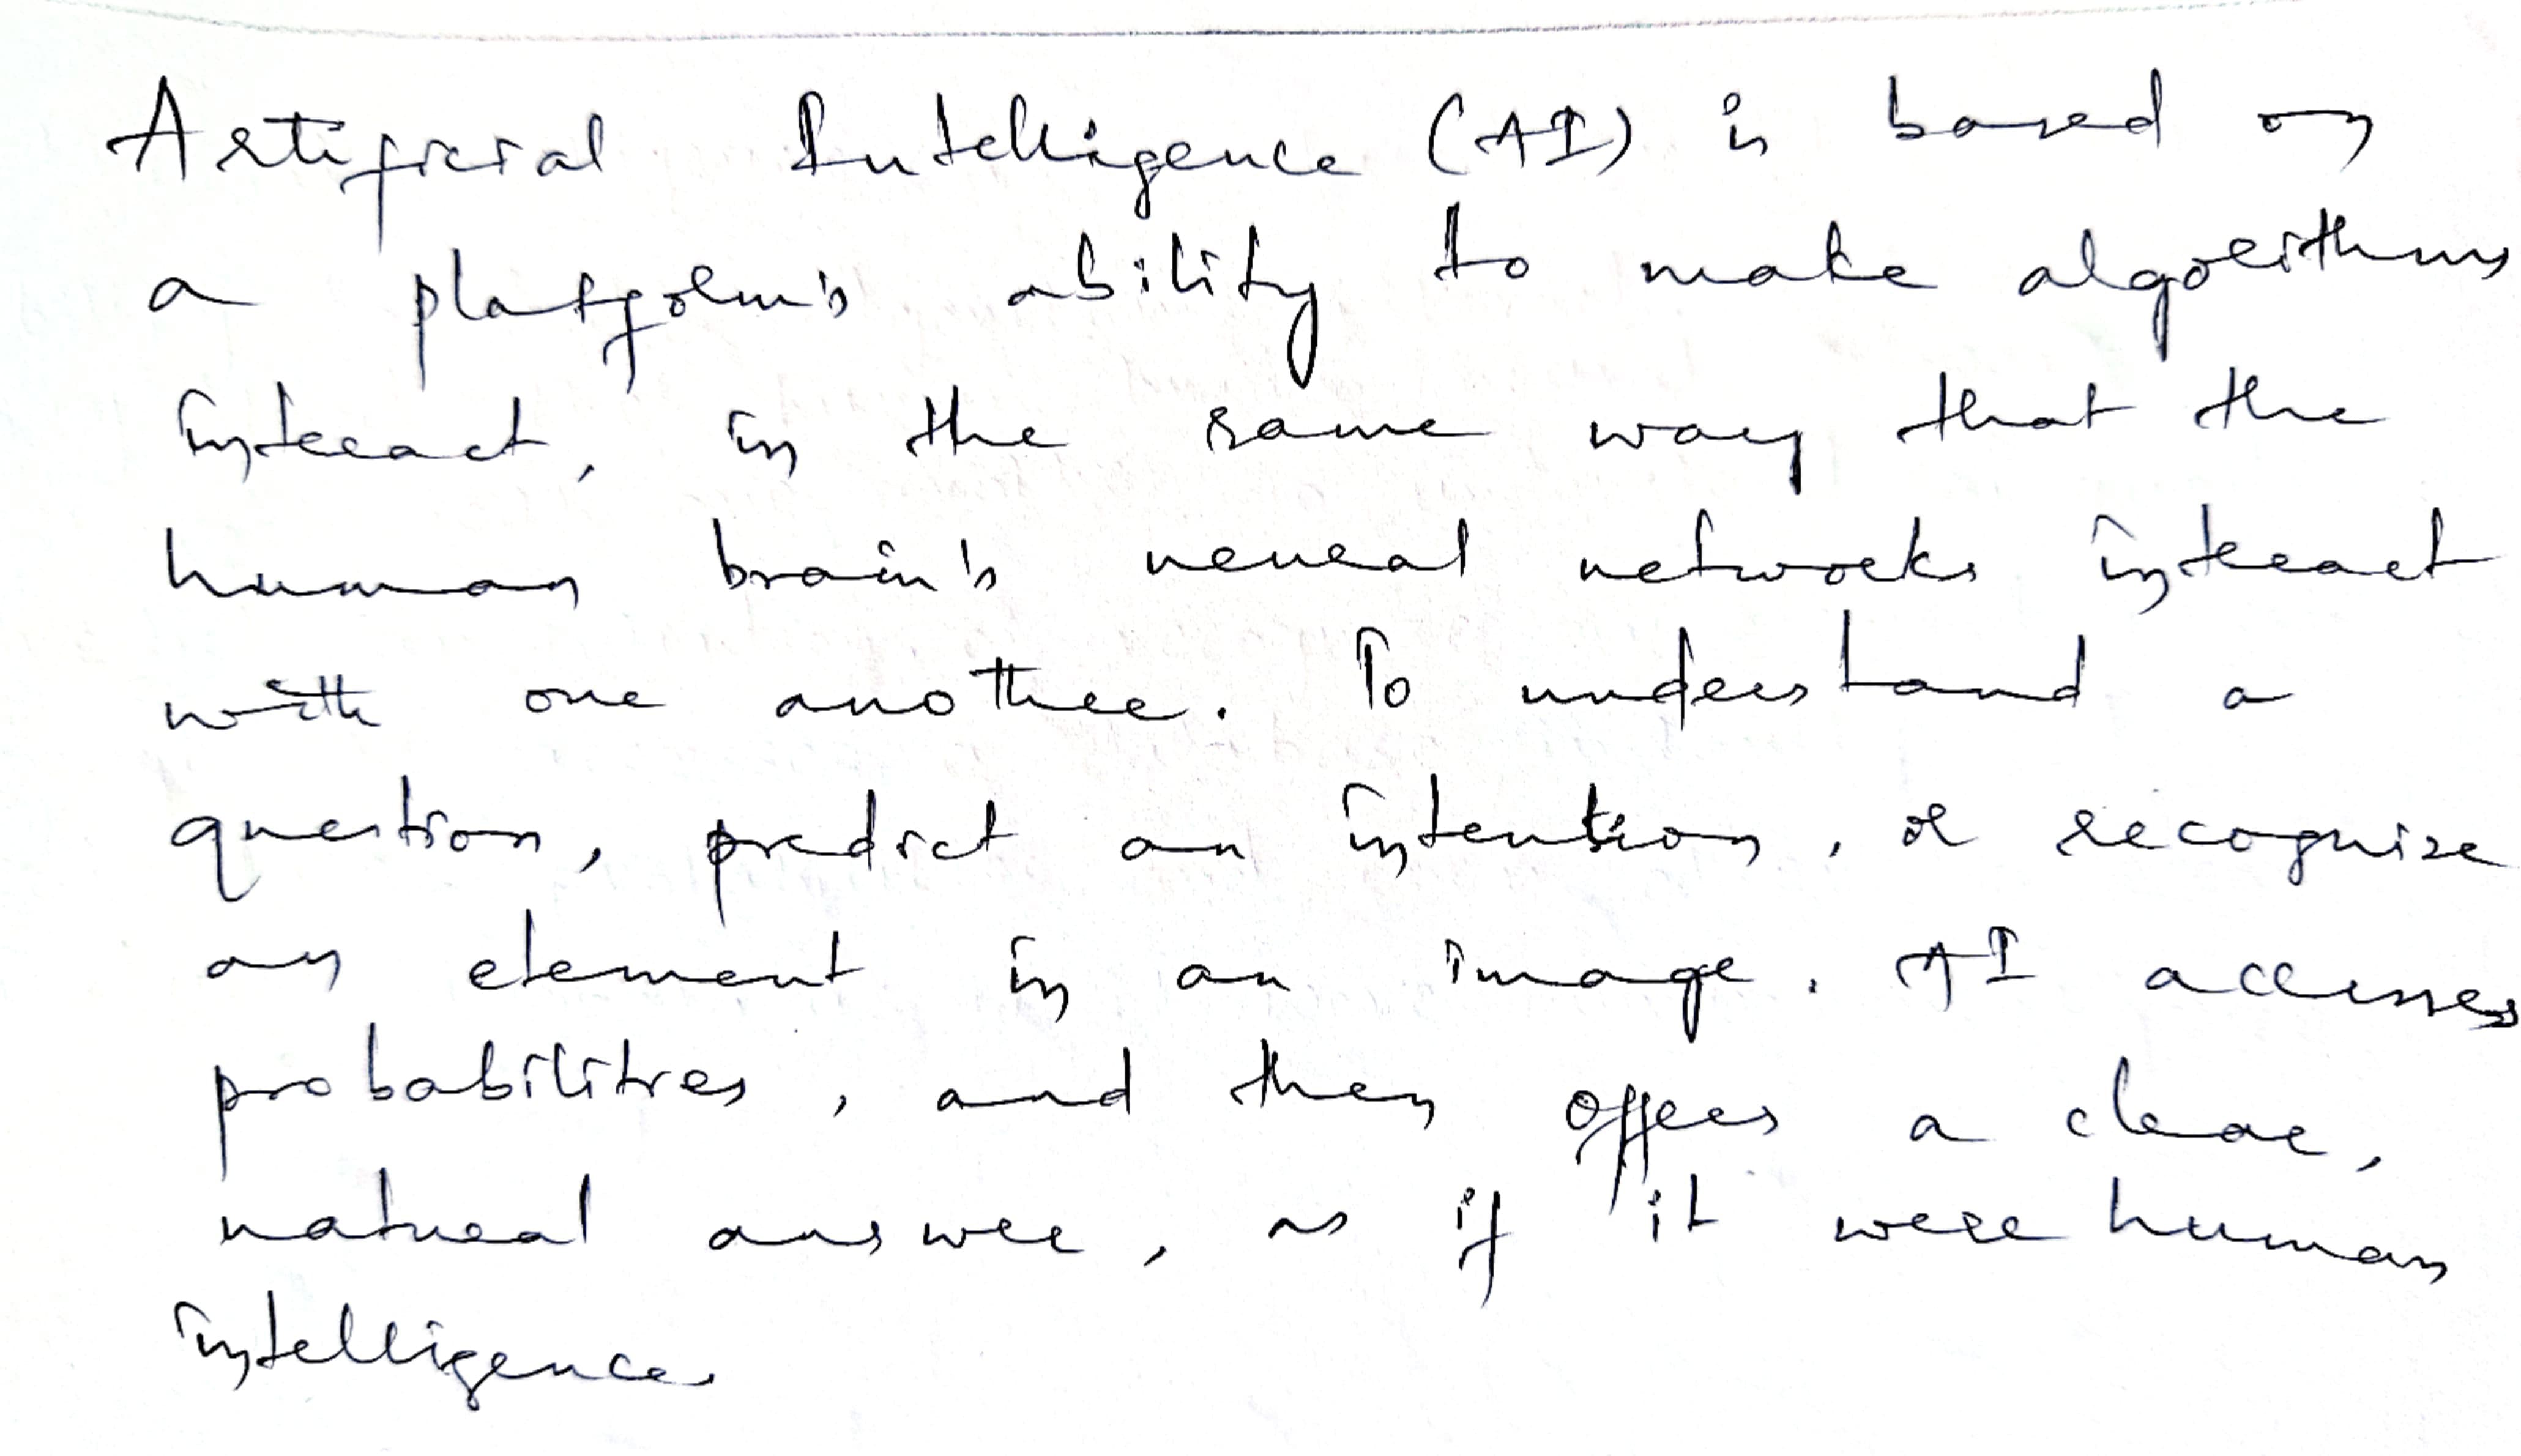 Artificial Intelligence (AI) is based on
a platform's ability to make algorithms
interact, in the same way that the
human brain's neural networks interact
with one another. To understand a
question, predict an intention, or recognize
an element in an image. AI accesses
probabilities, and then offers a clear,
natural answer, as if it were human
intelligence.